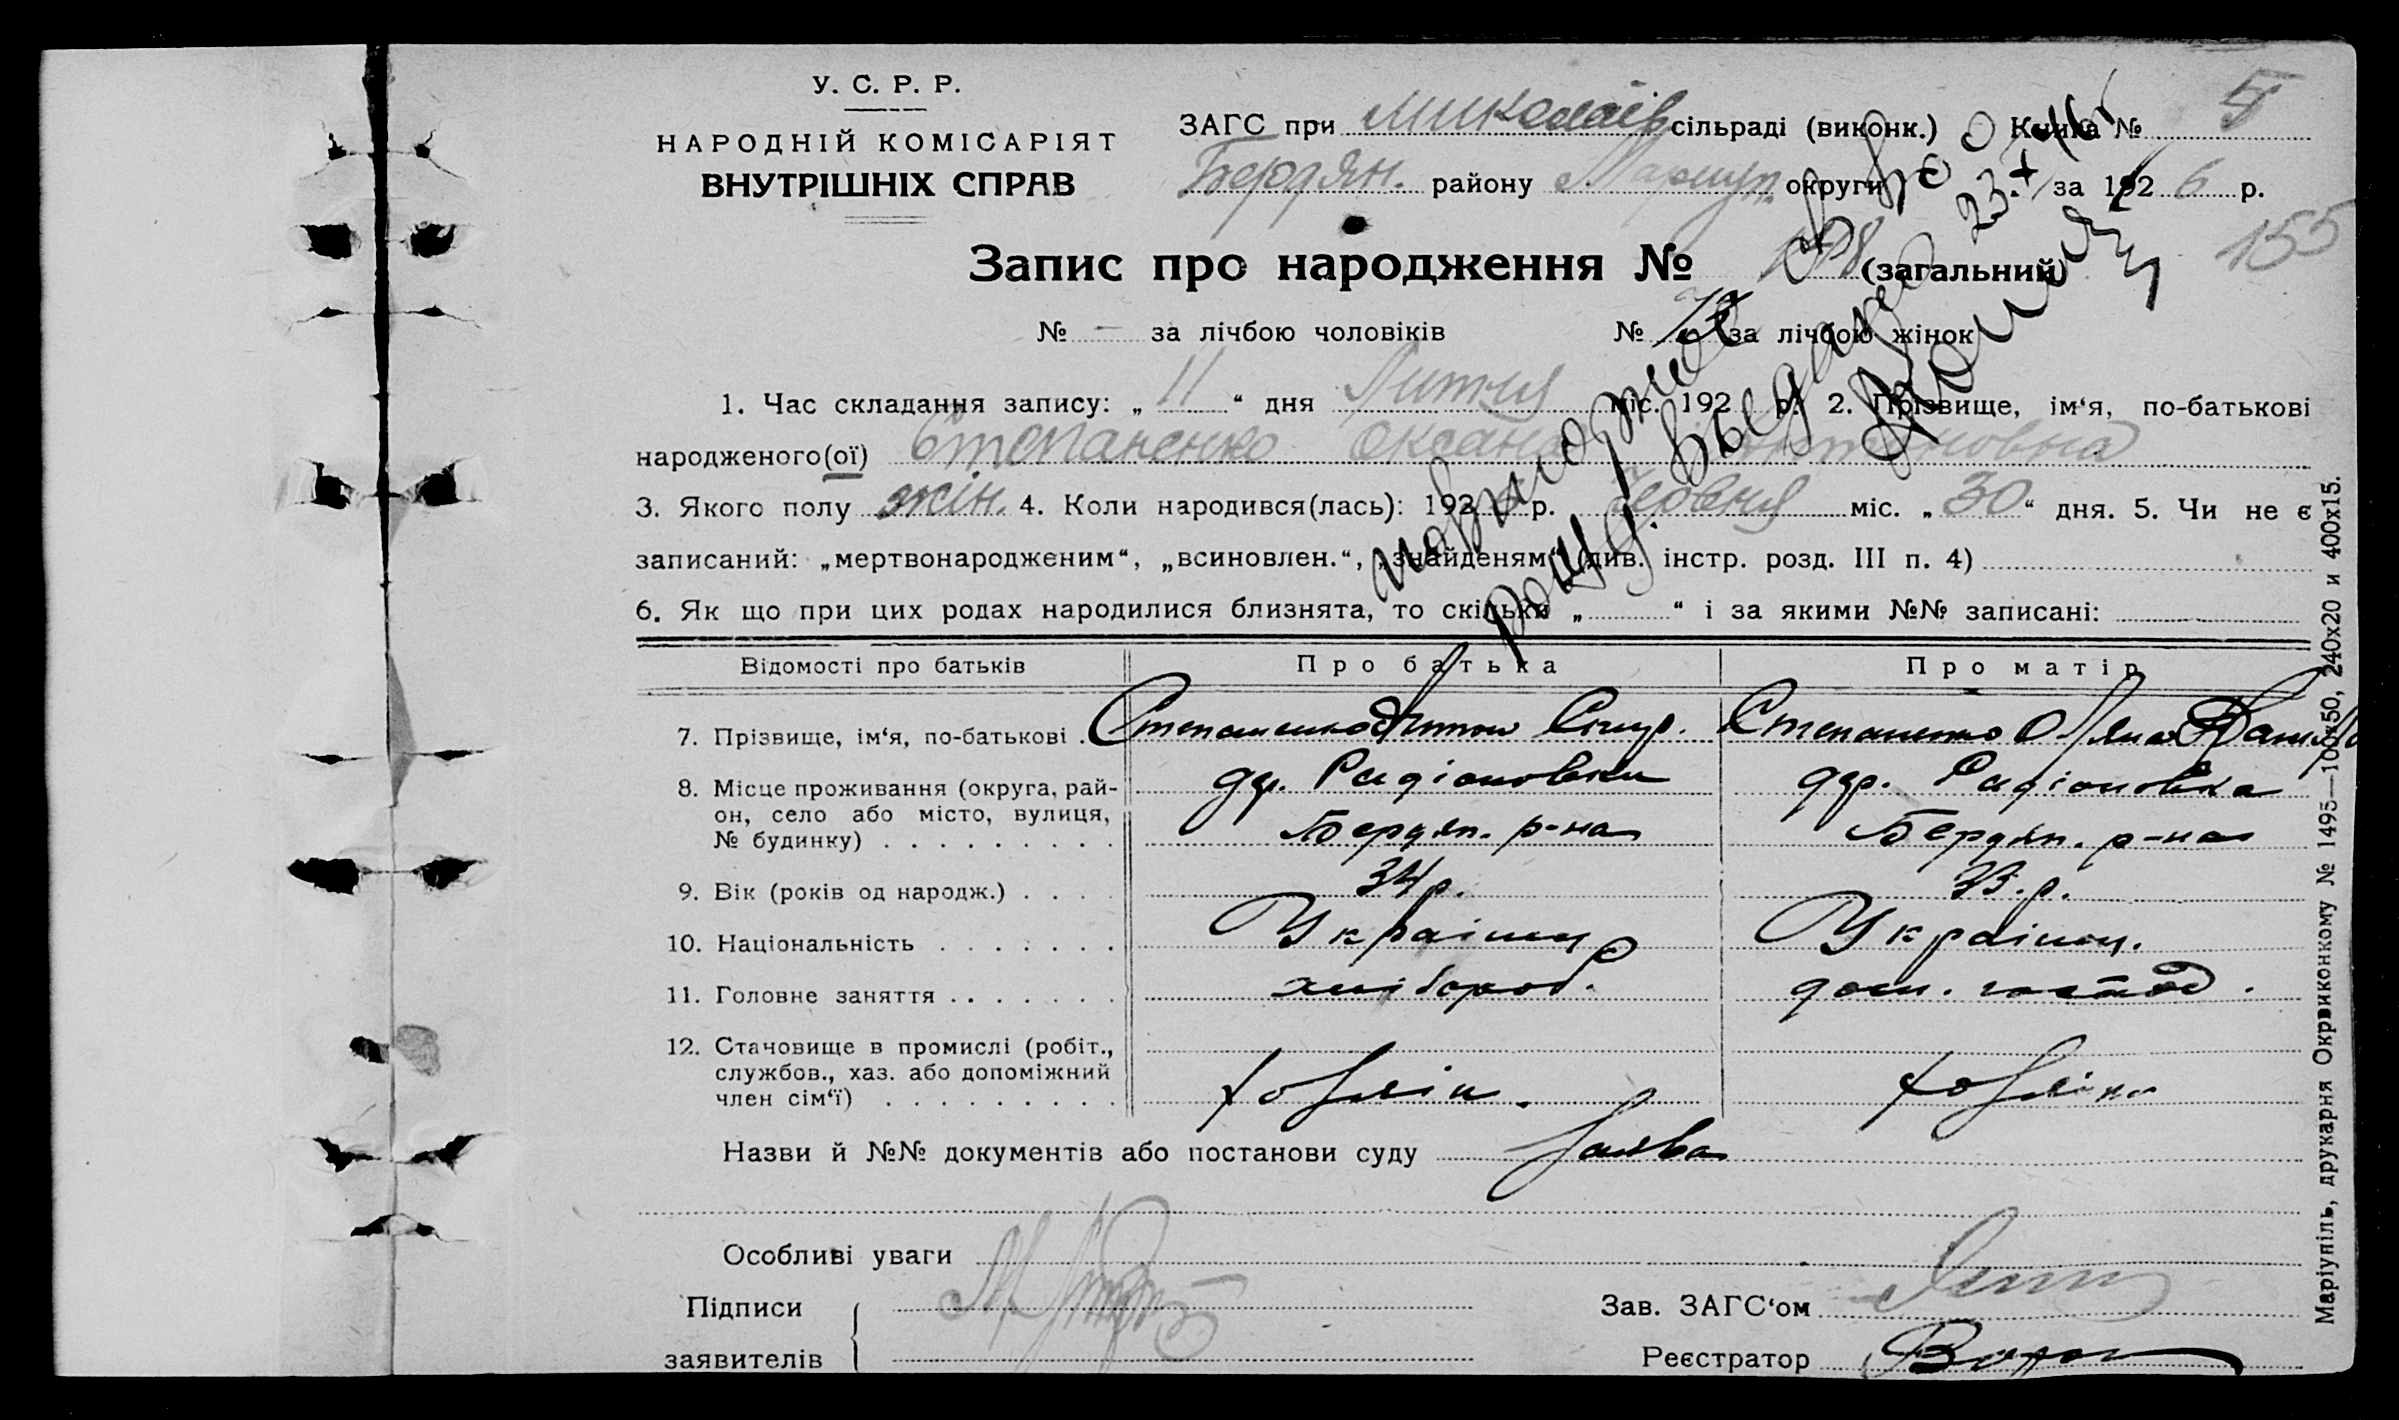 У. С. Р. Р.
НАРОДНІЙ КОМІСАРІЯТ
ВНУТРІШНІХ СПРАВ
ЗАГС при Миколаїв сільраді (виконк.) Книга № 5
Бердян. району Маріуп. округи за 1926 р.
155
Запис про народження № 158 (загальний)
№ — за лічбою чоловіків № за лічбою жінок
1. Час складання запису: „ 11 “ дня Липня міс. 192 р. 2. Прізвище, ім‘я, по-батькові
народженого(ої) Степаненко Оксана Антоновна
3. Якого полу жін. 4. Коли народився(лась): 1926 р. Червня міс. „ 30 “ дня. 5. Чи не є
записаний: „мертвонародженим“, „всиновлен.“, „знайденям“ (див. інстр. розд. III п. 4)
6. Як що при цих родах народилися близнята, то скільки „ “ і за якими №№ записані:
Відомості про батьків Про батька Про матір
7. Прізвище, ім‘я, по-батькові . Степаненко Антон Степаненко Уляна
8. Місце проживання (округа, рай-
он, село або місто, вулиця,
№ будинку) . . . . . . . . .
дер. Радіоновка дер. Радіоновка
Бердян. р-на Бердян. р-на
9. Вік (років од народж.) . . . . 34 р. 33. р.
10. Національність . . . . . . . Українц Українц.
11. Головне заняття . . . . . . . хлібороб. дом. господ.
12. Становище в промислі (робіт.,
службов., хаз. або допоміжний
член сім‘ї) . . . . . . . . .
хозяін. хозяіка
Назви й №№ документів або постанови суду Заява
Особливі уваги
Підписи
заявителів
Зав. ЗАГС‘ом
Реєстратор
повторное
выдано
23.X
Маріупіль, друкарня Окрвиконкому № 1495—100х50, 240х20 и 400х15.